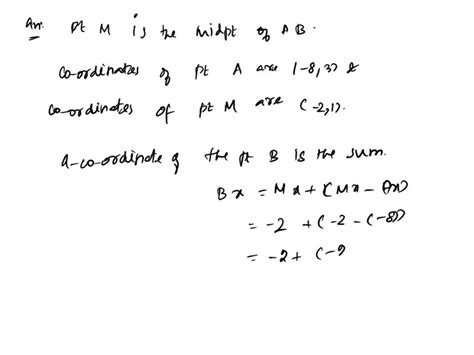 Ans. Pt M is the midpt of AB.
Co-ordinates of pt A are (-8,3) &
Co-ordinates of pt M are (-2,1).
x-co-ordinate of the pt B is the sum.
Bx = Mx + (Mx - Ax)
= -2 + (-2 - (-8))
= -2 + (-2